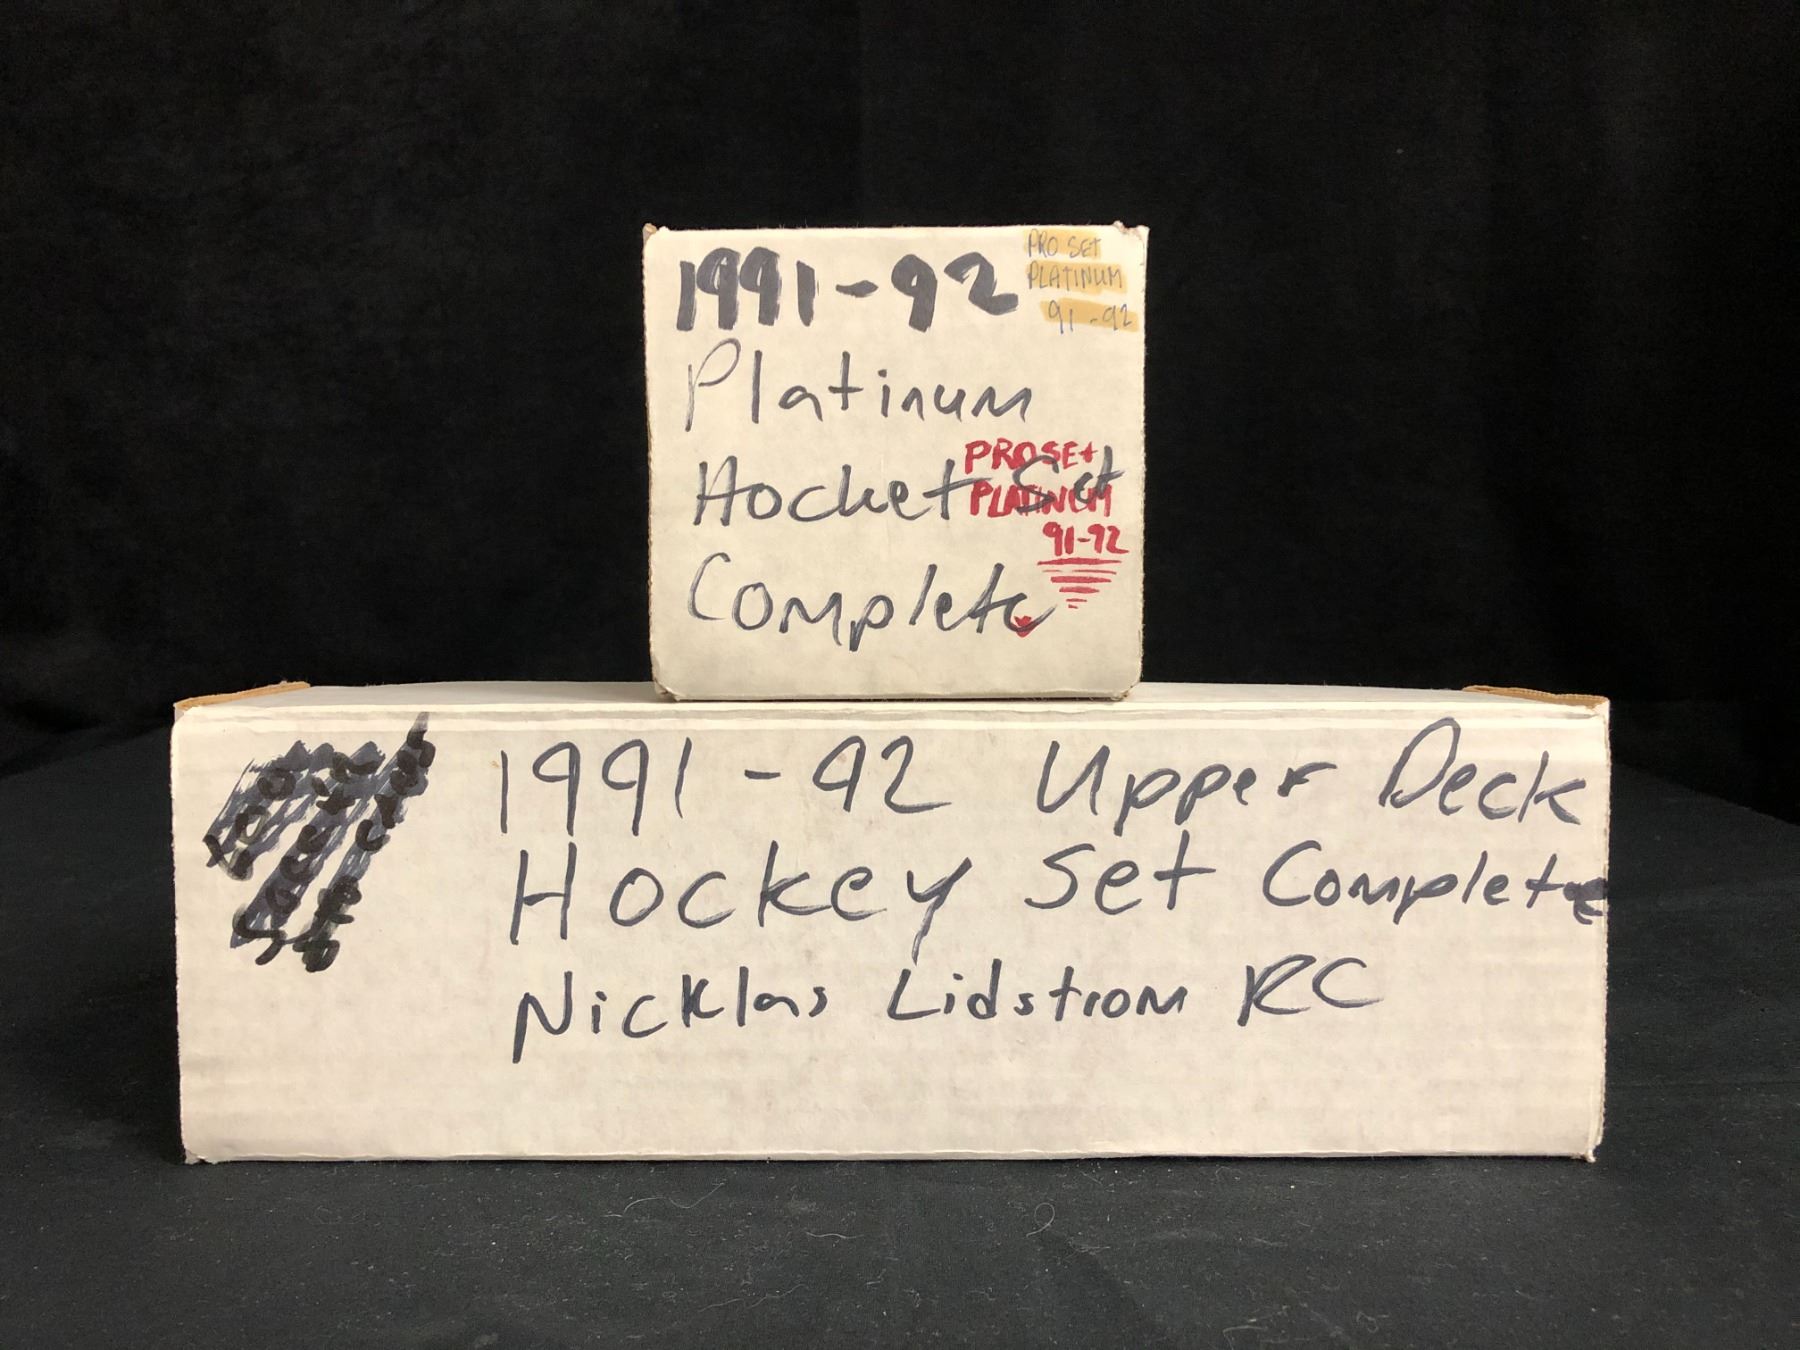 1991-92
PRO SET
PLATINUM
91-92
Platinum
Hocket Set
PRO SEt
PLATINUM
91-92
Complete
1991-92 Upper Deck
Hockey Set Complete
Nicklas Lidstrom RC